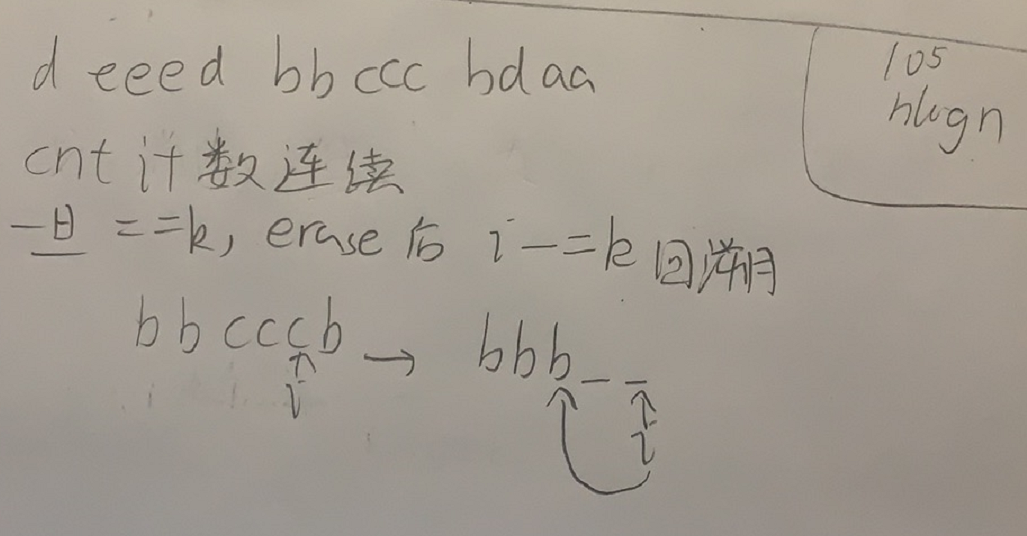 d eeed bbccc bdaa
cnt 计数连续
一旦 ==k, erase后 i-=k 回溯
bbccccb → bbb__
i
i
105
nlogn